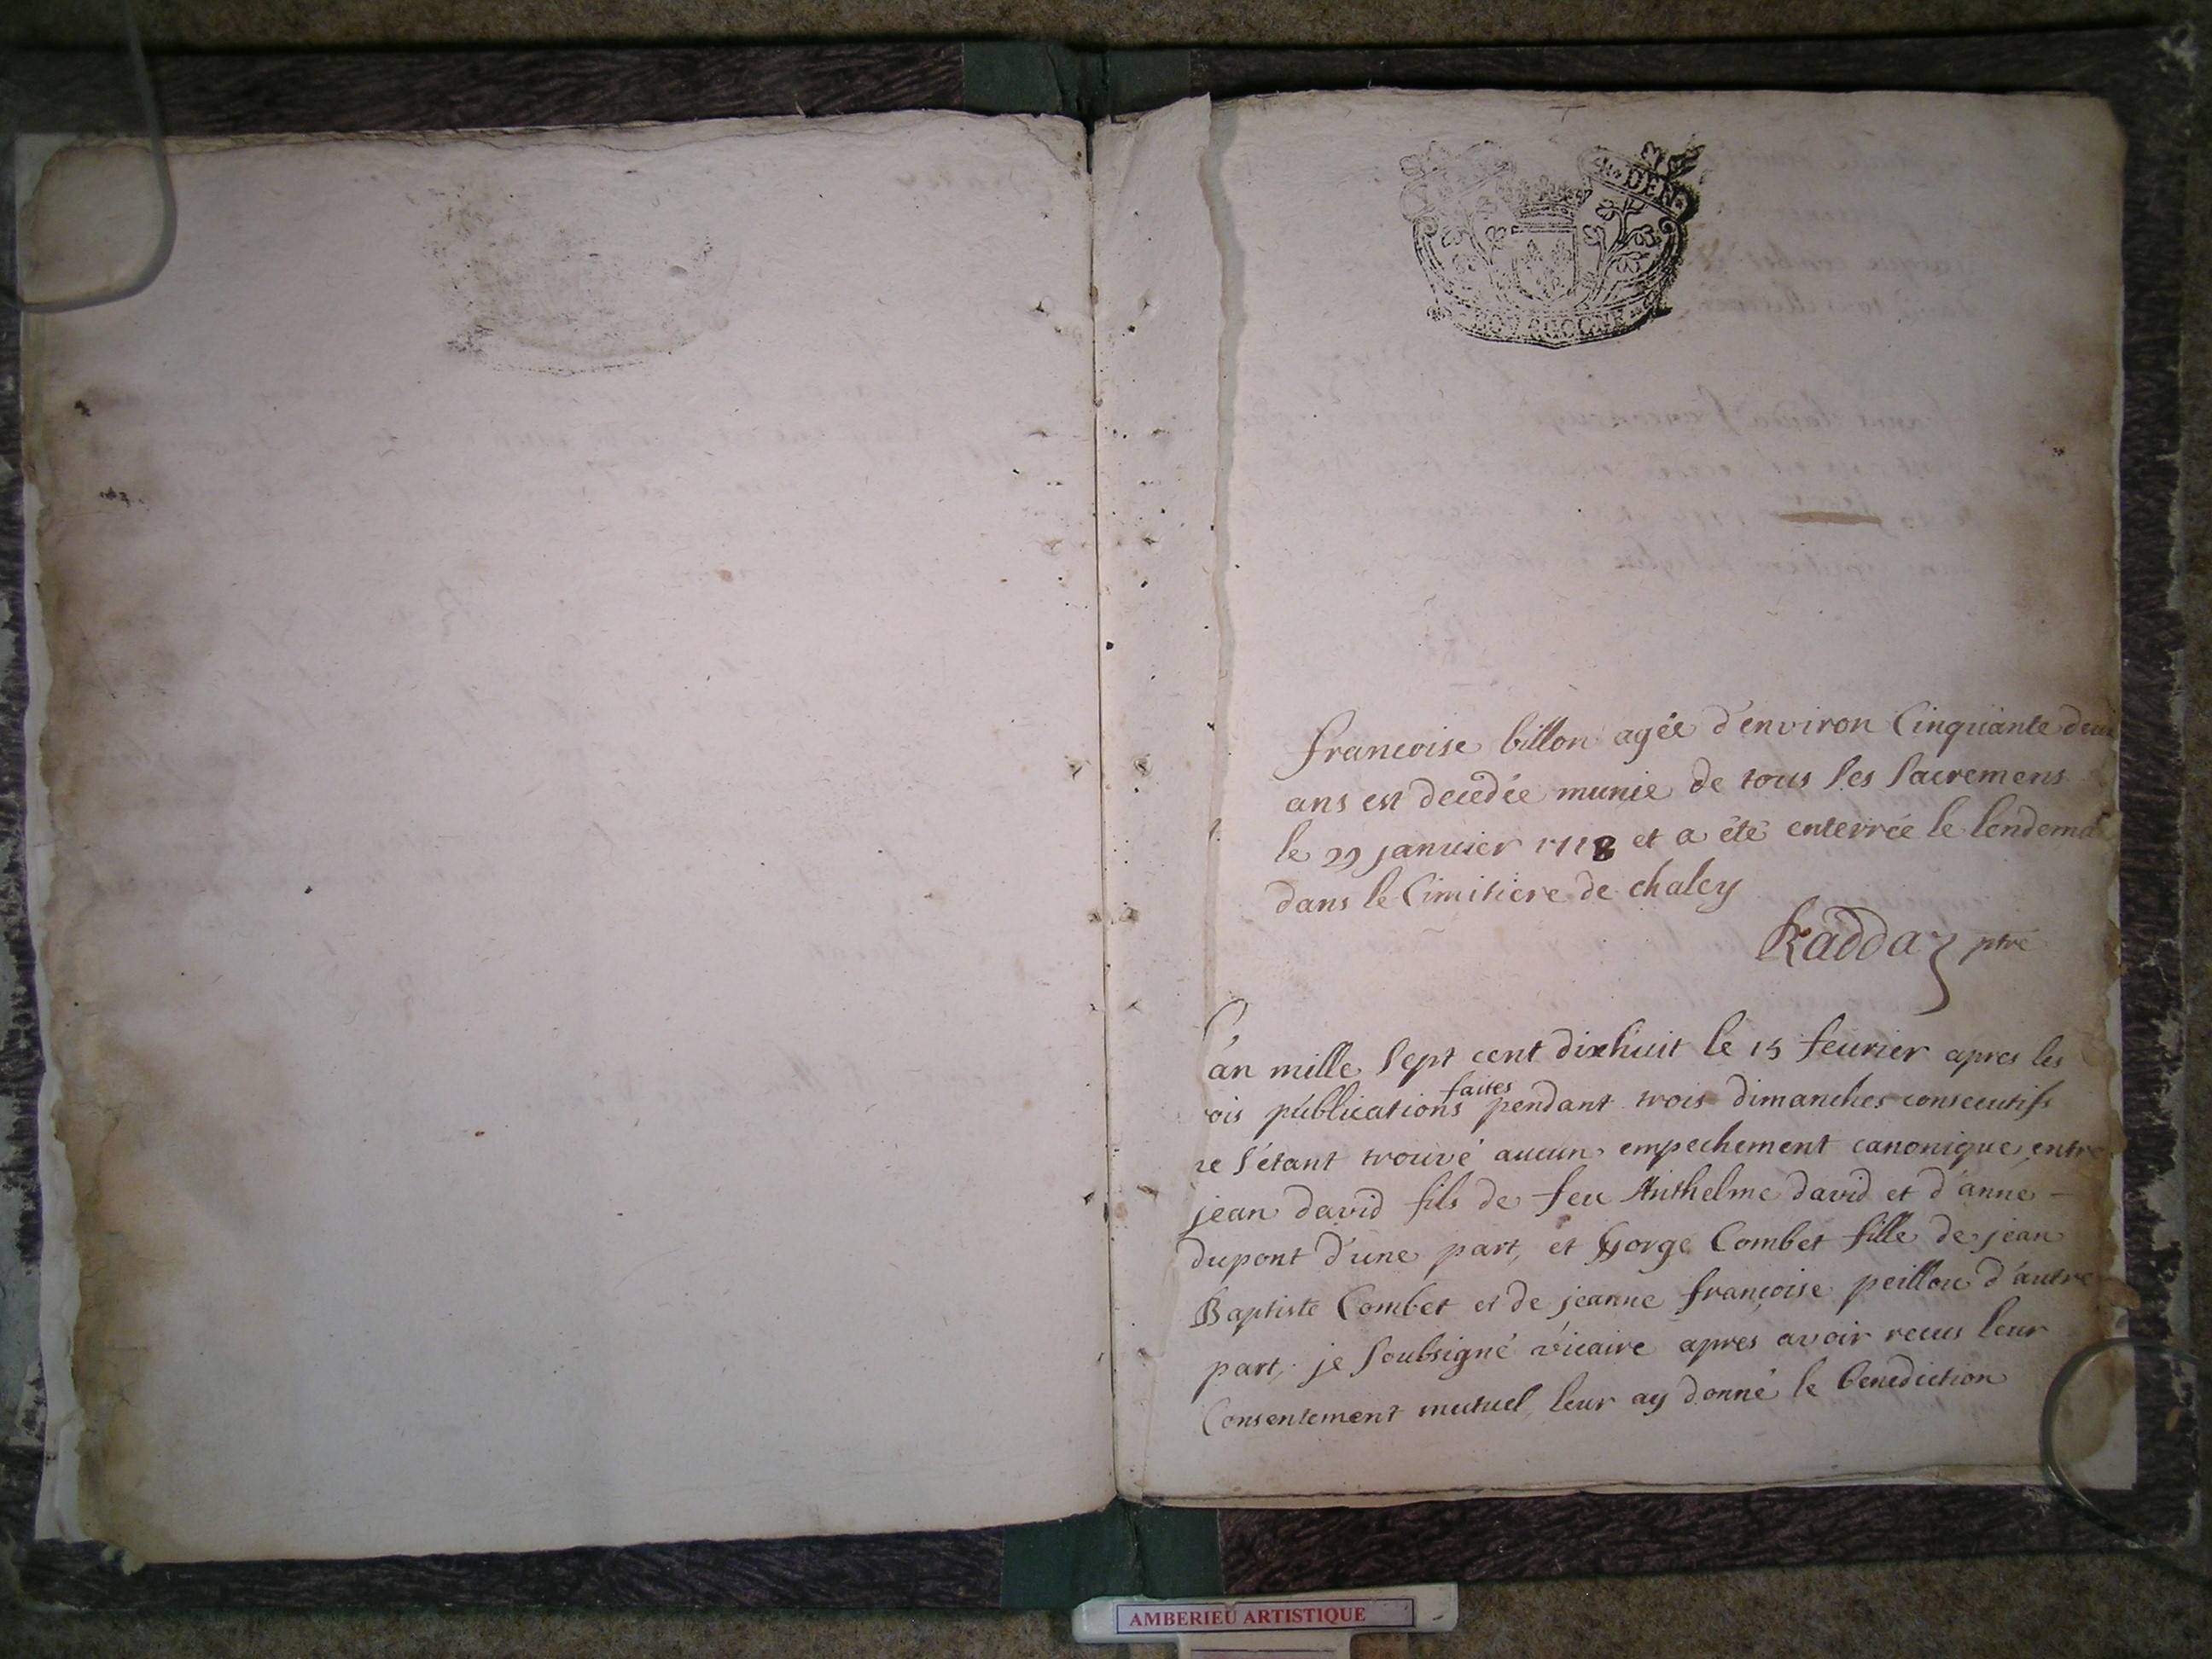 DEN
BOVRGOGNE
francoise billon agée d'environ Cinquante deux
ans est decedée munie de tous ses sacremens
le 29 janvier 1718 et a été enterrée le lendemai
dans le Cimitiere de chaley
Raddaz ptre
L'an mille sept cent dixhuit le 15 feurier apres les
rois publications faites pendant trois dimanches consecutifs
ne s'étant trouvé aucun empechement canonique entre
jean david fils de feu Anthelme david et d'anne
dupont d'une part, et Gorge Combet fille de jean
Baptiste Combet et de jeanne françoise peillou d'autre
part, je soubsigné vicaire apres avoir receu leur
Consentement mutuel leur ay donné le benediction
AMBERIEU ARTISTIQUE